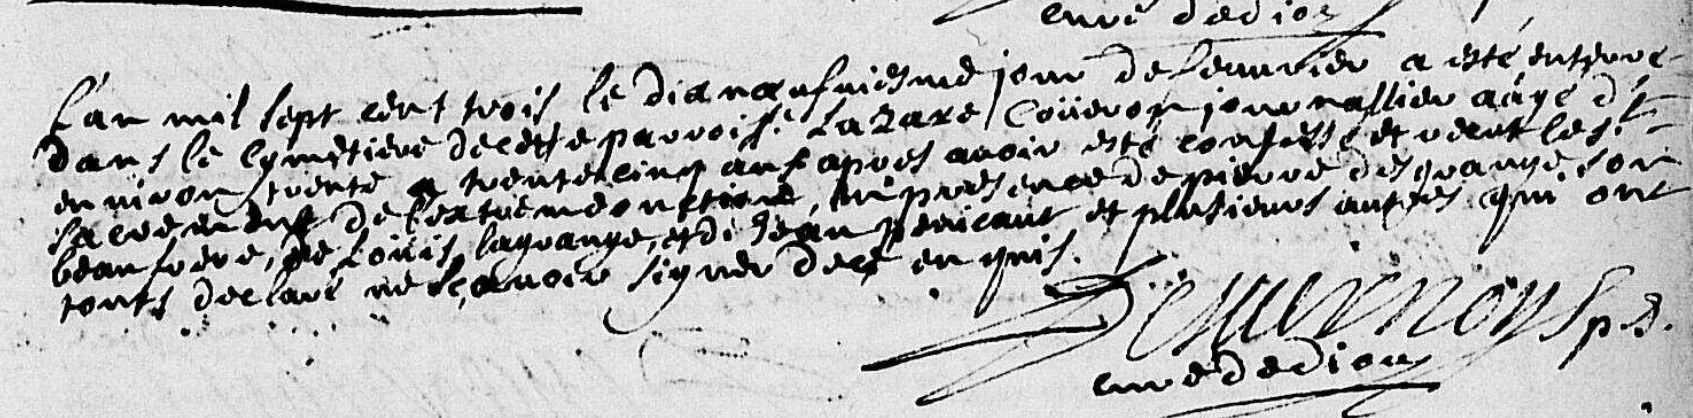 curé de dion
L'an mil sept cent trois le dianeufuiesme jour de feuurier a esté enterré
dans le cymetiere de cette parroisse Lazare Coüeron journallier aagé d'
enuiron trente a trente cinq ans apres auoir esté confessé et receut les
sacrement de l'extremeonction, en presence de pierre desgrange son
beaufrere, de Loüis lagrange, et de Jean pericaut et plusieurs autres qui ont
touts declaré ne sçauoir signer de ce enquis.
p.d.
curé de dion